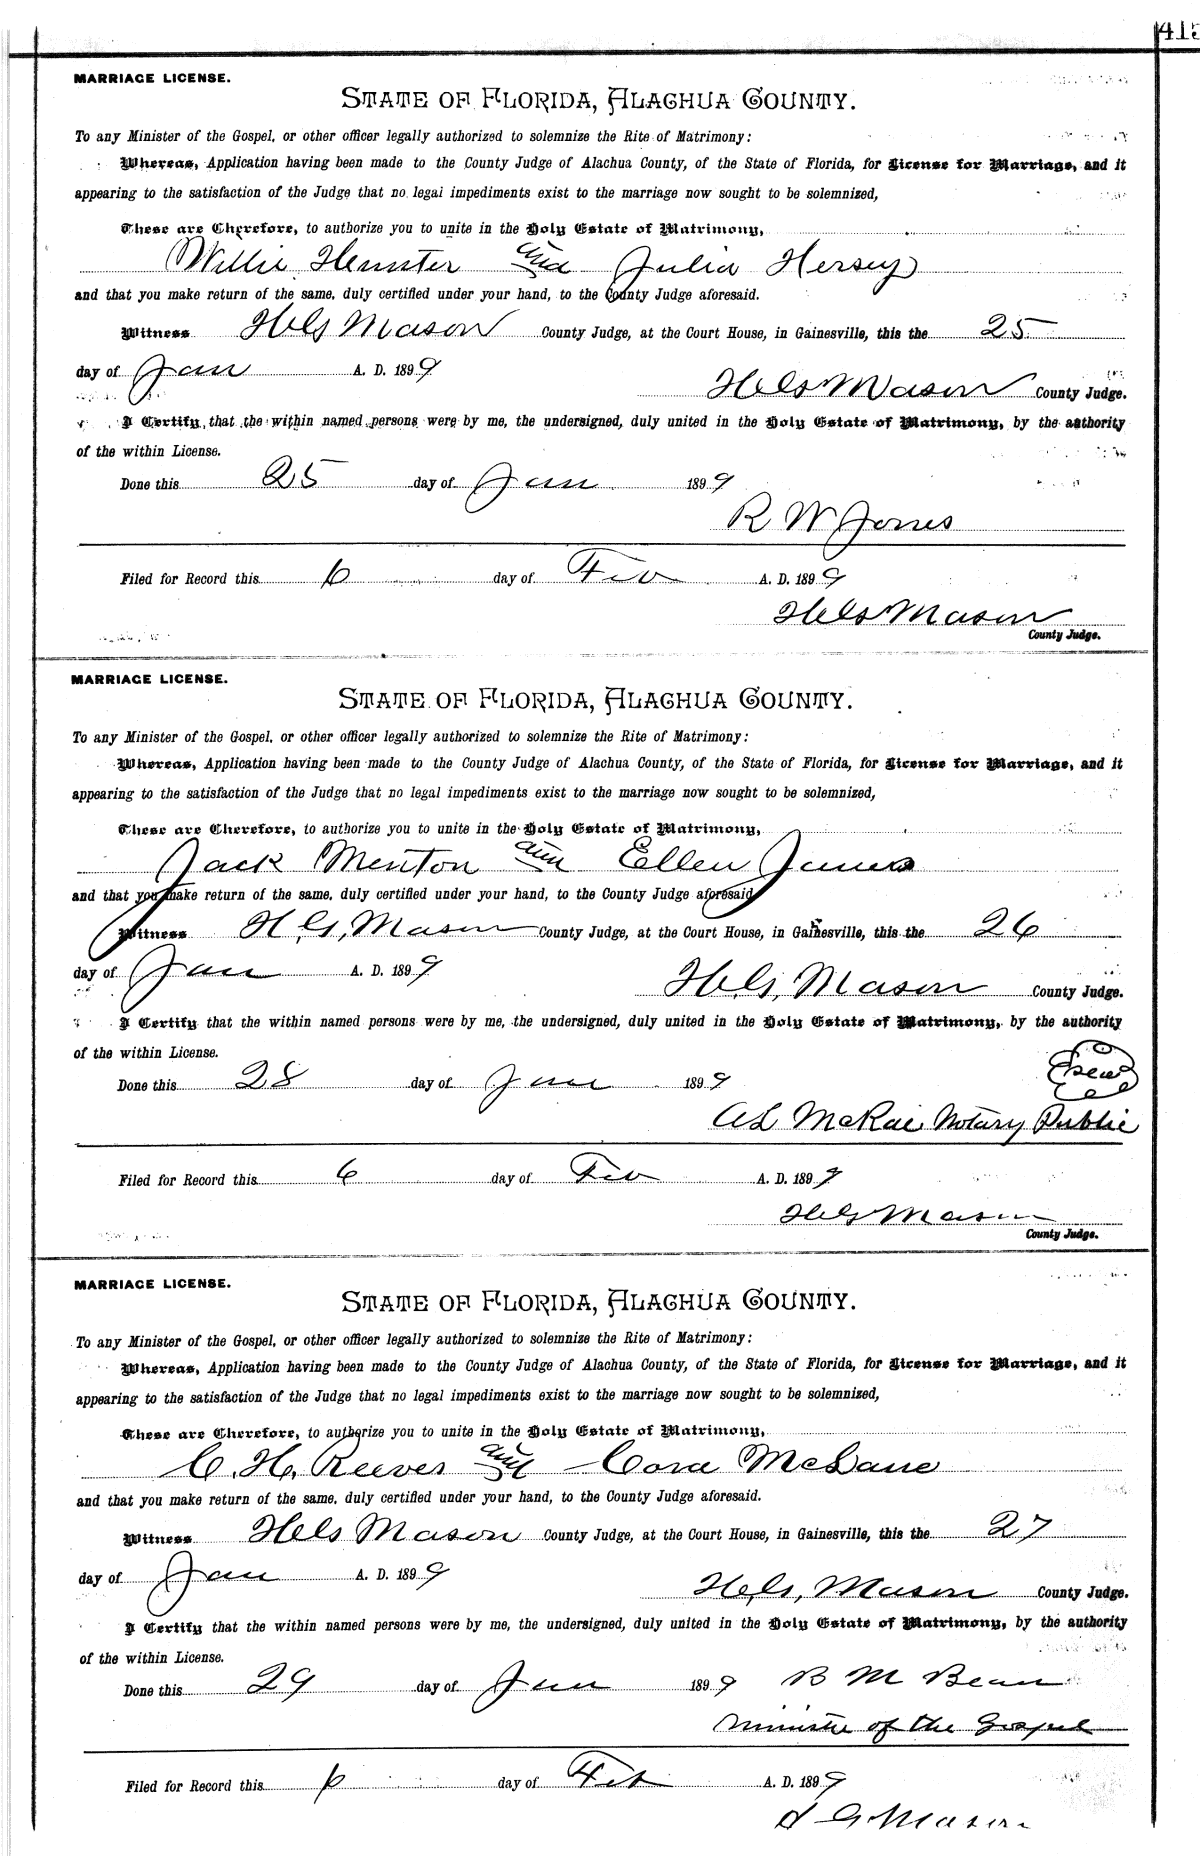 415
MARRIAGE LICENSE.
STATE OF FLORIDA, ALACHUA COUNTY.
To any Minister of the Gospel, or other officer legally authorized to solemnize the Rite of Matrimony:
Whereas, Application having been made to the County Judge of Alachua County, of the State of Florida, for License for Marriage, and it
appearing to the satisfaction of the Judge that no legal impediments exist to the marriage now sought to be solemnized,
These are Therefore, to authorize you to unite in the Holy Estate of Matrimony,
Willie and Julia Hersey
and that you make return of the same, duly certified under your hand, to the County Judge aforesaid.
Witness H G Mason County Judge, at the Court House, in Gainesville, this the 25
day of Jan A. D. 1899
H G Mason County Judge.
I Certify, that the within named persons were by me, the undersigned, duly united in the Holy Estate of Matrimony, by the authority
of the within License.
Done this 25 day of Jan 1899
R W Jones
Filed for Record this 6 day of Feb A. D. 1899
H G Mason
County Judge.
MARRIAGE LICENSE.
STATE OF FLORIDA, ALACHUA COUNTY.
To any Minister of the Gospel, or other officer legally authorized to solemnize the Rite of Matrimony:
Whereas, Application having been made to the County Judge of Alachua County, of the State of Florida, for License for Marriage, and it
appearing to the satisfaction of the Judge that no legal impediments exist to the marriage now sought to be solemnized,
These are Therefore, to authorize you to unite in the Holy Estate of Matrimony,
Jack Menton and Ellen James
and that you make return of the same, duly certified under your hand, to the County Judge aforesaid
Witness H. G. Mason County Judge, at the Court House, in Gainesville, this the 26
day of Jan A. D. 1899
H. G. Mason County Judge.
I Certify that the within named persons were by me, the undersigned, duly united in the Holy Estate of Matrimony, by the authority
of the within License.
Done this 28 day of Jan 1899
Seal
A L McRae Notary Public
Filed for Record this 6 day of Feb A. D. 1899
H G Mason
County Judge.
MARRIAGE LICENSE.
STATE OF FLORIDA, ALACHUA COUNTY.
To any Minister of the Gospel, or other officer legally authorized to solemnize the Rite of Matrimony:
Whereas, Application having been made to the County Judge of Alachua County, of the State of Florida, for License for Marriage, and it
appearing to the satisfaction of the Judge that no legal impediments exist to the marriage now sought to be solemnized,
These are Therefore, to authorize you to unite in the Holy Estate of Matrimony,
C. H. Reeves and Cora McLane
and that you make return of the same, duly certified under your hand, to the County Judge aforesaid.
Witness H G Mason County Judge, at the Court House, in Gainesville, this the 27
day of Jan A. D. 1899
H. G. Mason County Judge.
I Certify that the within named persons were by me, the undersigned, duly united in the Holy Estate of Matrimony, by the authority
of the within License.
Done this 29 day of Jan 1899 B M Bean
Minister of the Gospel
Filed for Record this 6 day of Feb A. D. 1899
H G Mason